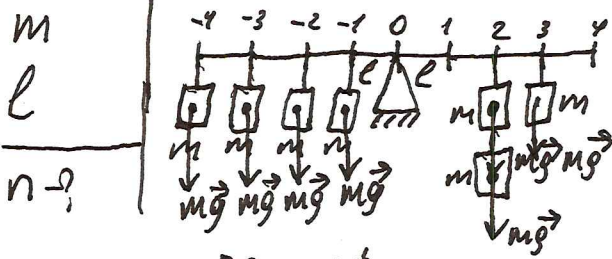 m
l
n-?
-4 -3 -2 -1 0 1 2 3 4
l l
m m
m m m m m
mg⃗ mg⃗ mg⃗ mg⃗ mg⃗ mg⃗
mg⃗